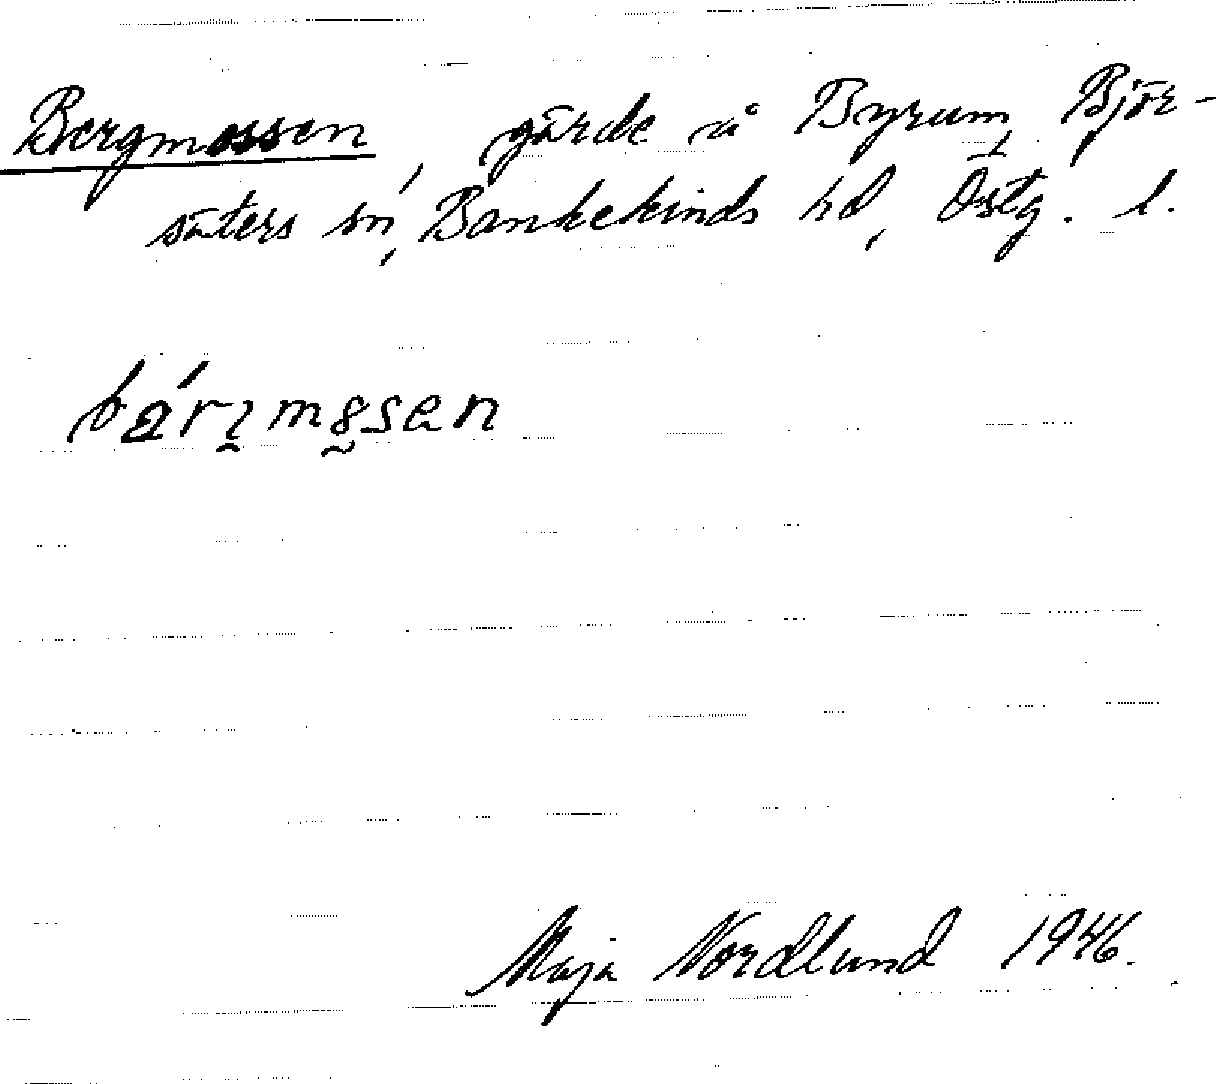 Bergmossen, gärde å Byrum, Björ-
säters sn, Bankekinds hd, Östg. l.
Maja Nordlund 1946.